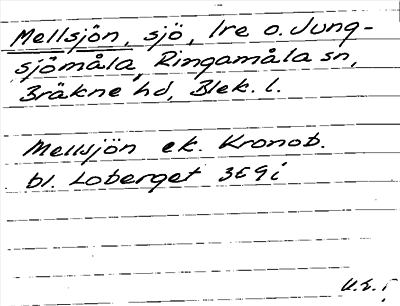 Mellsjön, sjö, 1re o. Jung-
sjömåla, Ringamåla sn,
Bräkne hd, Blek. l.
Mellsjön ek. Kronob.
bl. Loberget 3E9i